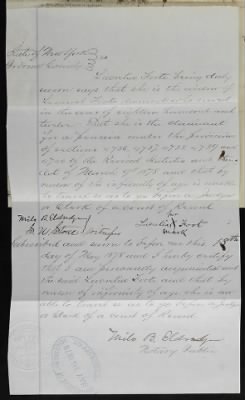 State of New York
Broome County } ss
Lucretia Foote being duly
sworn says that she is the widow of
Samuel Foote who served
in the war of eighteen hundred and
twelve. That she is the claimant
for a pension under the provisions
of sections 4736, 4737, 4738, 4739 and
4740 of the Revised Statutes and the
Act of March 9th 1878 and that by
reason of the infirmity of age is unable
to leave so as to go before a judge
or Clerk of a Court of Record
Milo B. Eldredge her
Lucretia X Foot
M. W. Stone Witnesses mark
Subscribed and sworn to before me this 18th
day of May 1878 and I hereby certify
that I am personally acquainted with
the said Lucretia Foote and that by
reason of infirmity of age she is un-
able to leave so as to go before a judge
or clerk of a court of Record
Milo B. Eldredge
Notary Public